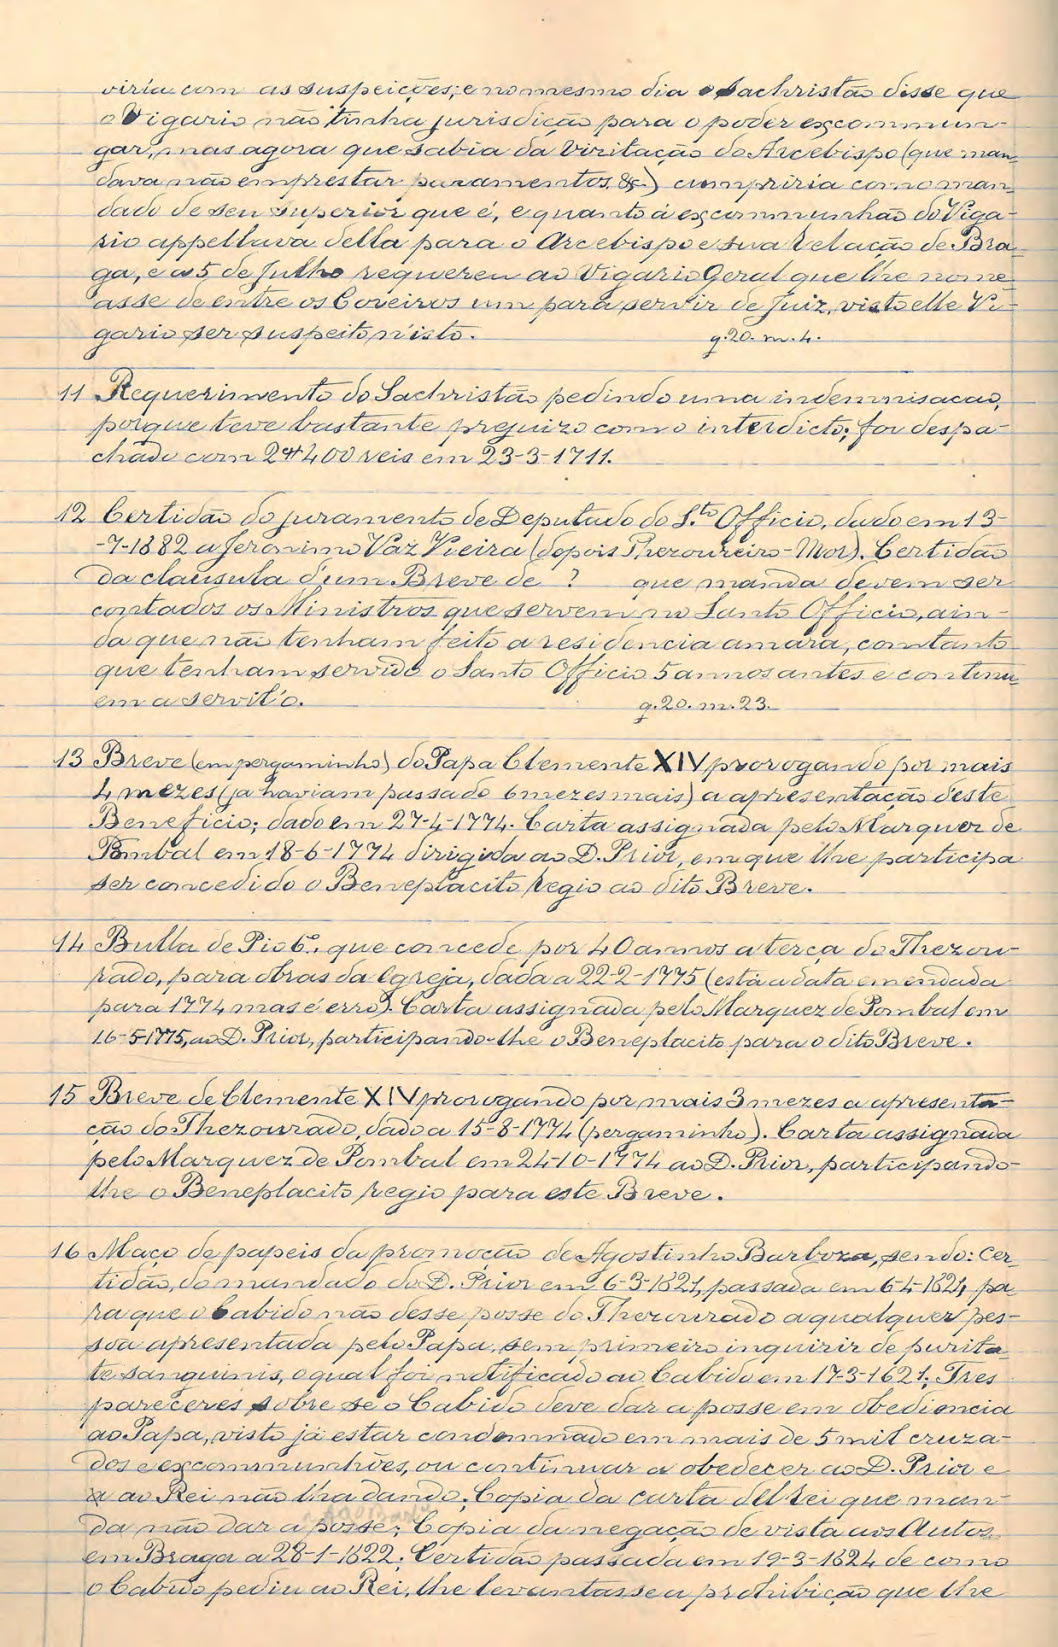 viria com as suspeições; e no mesmo dia o Sachristão disse que
o Vigario não tinha jurisdição para o poder excommun-
gar, mas agora que sabia da Visitação do Arcebispo (que man-
dava não emprestar paramentos, &c.) cumpriria como man-
dado de seu superior que é, e quanto á excommunhão do Viga-
rio appellava della para o Arcebispo e sua Relação de Bra-
ga, e a 5 de Julho requereu ao Vigario Geral que lhe nome-
asse de entre os Coreiros um para servir de Juiz, visto elle Vi-
gario ser suspeito n'isto. g. 20. m. 4.
11 Requerimento do Sachristão pedindo uma indemnisacao,
porque teve bastante prejuizo com o interdicto; foi despa-
chado com 2$400 reis em 23-3-1711.
12 Certidão do juramento de Deputado do S.to Officio, dado em 13-
-7-1882 a Jeronimo Vaz Vieira (depois Thezoureiro-Mor). Certidão
da clausula d'um Breve de ? que manda devem ser
contados os Ministros que servem no Santo Officio, ain-
da que não tenham feito a residencia amara, comtanto
que tenham servido o Santo Officio 5 annos antes e continu-
em a servil'o. g. 20. m. 23.
13 Breve (em pergaminho) do Papa Clemente XIV prorogando por mais
4 mezes (ja haviam passado 6 mezes mais) a apresentação deste
Beneficio; dado em 27-4-1774. Carta assignada pelo Marquez de
Pombal em 18-6-1774 dirigida ao D. Prior, em que lhe participa
ser concedido o Beneplacito Regio ao dito Breve.
14 Bulla de Pio 6º, que concede por 40 annos a terça do Thezou-
rado, para obras da Egreja, dada a 22-2-1775 (está a data emendada
para 1774 mas é erro). Carta assignada pelo Marquez de Pombal em
16-5-1775, ao D. Prior, participando-lhe o Beneplacito para o dito Breve.
15 Breve de Clemente XIV prorogando por mais 3 mezes a apresenta-
ção do Thezourado, dado a 15-8-1774 (pergaminho). Carta assignada
pelo Marquez de Pombal em 24-10-1774 ao D. Prior, participando-
lhe o Beneplacito Regio para este Breve.
16 Maço de papeis da promoção de Agostinho Barboza, sendo: Cer-
tidão, do mandado do D. Prior em 6-3-1621, passada em 6-4-1621, pa-
ra que o Cabido não desse posse do Thezourado a qualquer pes-
soa apresentada pelo Papa, sem primeiro inquirir de purita-
te sanguinis, o qual foi notificado ao Cabido em 17-3-1621; Tres
pareceres sobre se o Cabido deve dar a posse em obediencia
ao Papa, visto já estar condemnado em mais de 5 mil cruza-
dos e excommunhões, ou continuar a obedecer ao D. Prior e
ao Rei não lha dando; Copia da carta del Rei que man-
da não dar a posse; Copia da negação de vista aos Autos
em Braga a 28-1-1622; Certidão passada em 19-3-1624 de como
o Cabido pediu ao Rei, lhe levantasse a prohibição que lhe